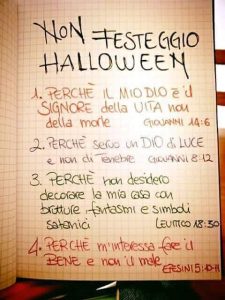 NON FESTEGGIO
HALLOWEEN
1. PERCHÈ IL MIO DIO È il
SIGNORE della VITA non
della morte GIOVANNI 14:6
2. PERCHÈ servo un DIO di LUCE
e non di Tenebre GIOVANNI 8:12
3. PERCHÈ non desidero
decorare la mia casa con
brutture fantasmi e simboli
satanici LEVITICO 18:30
4. PERCHÈ m'interessa fare il
BENE e non il male
EFESINI 5:10-11